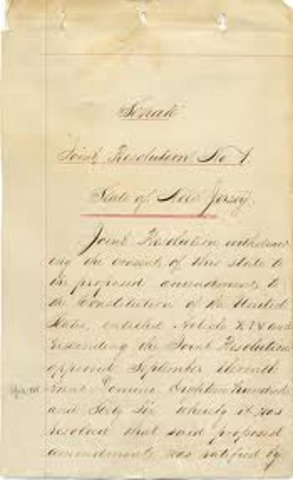 Senate
Joint Resolution No 1.
State of New Jersey.
Joint Resolution withdraw
ing the consent of this state to
the proposed amendments to
the Constitution of the United
States, entitled Article XIV and
rescinding the Joint Resolution
approved September eleventh
Anno Domini Eighteen hundred
and Sixty six whereby it was
resolved that said proposed
amendments was ratified by